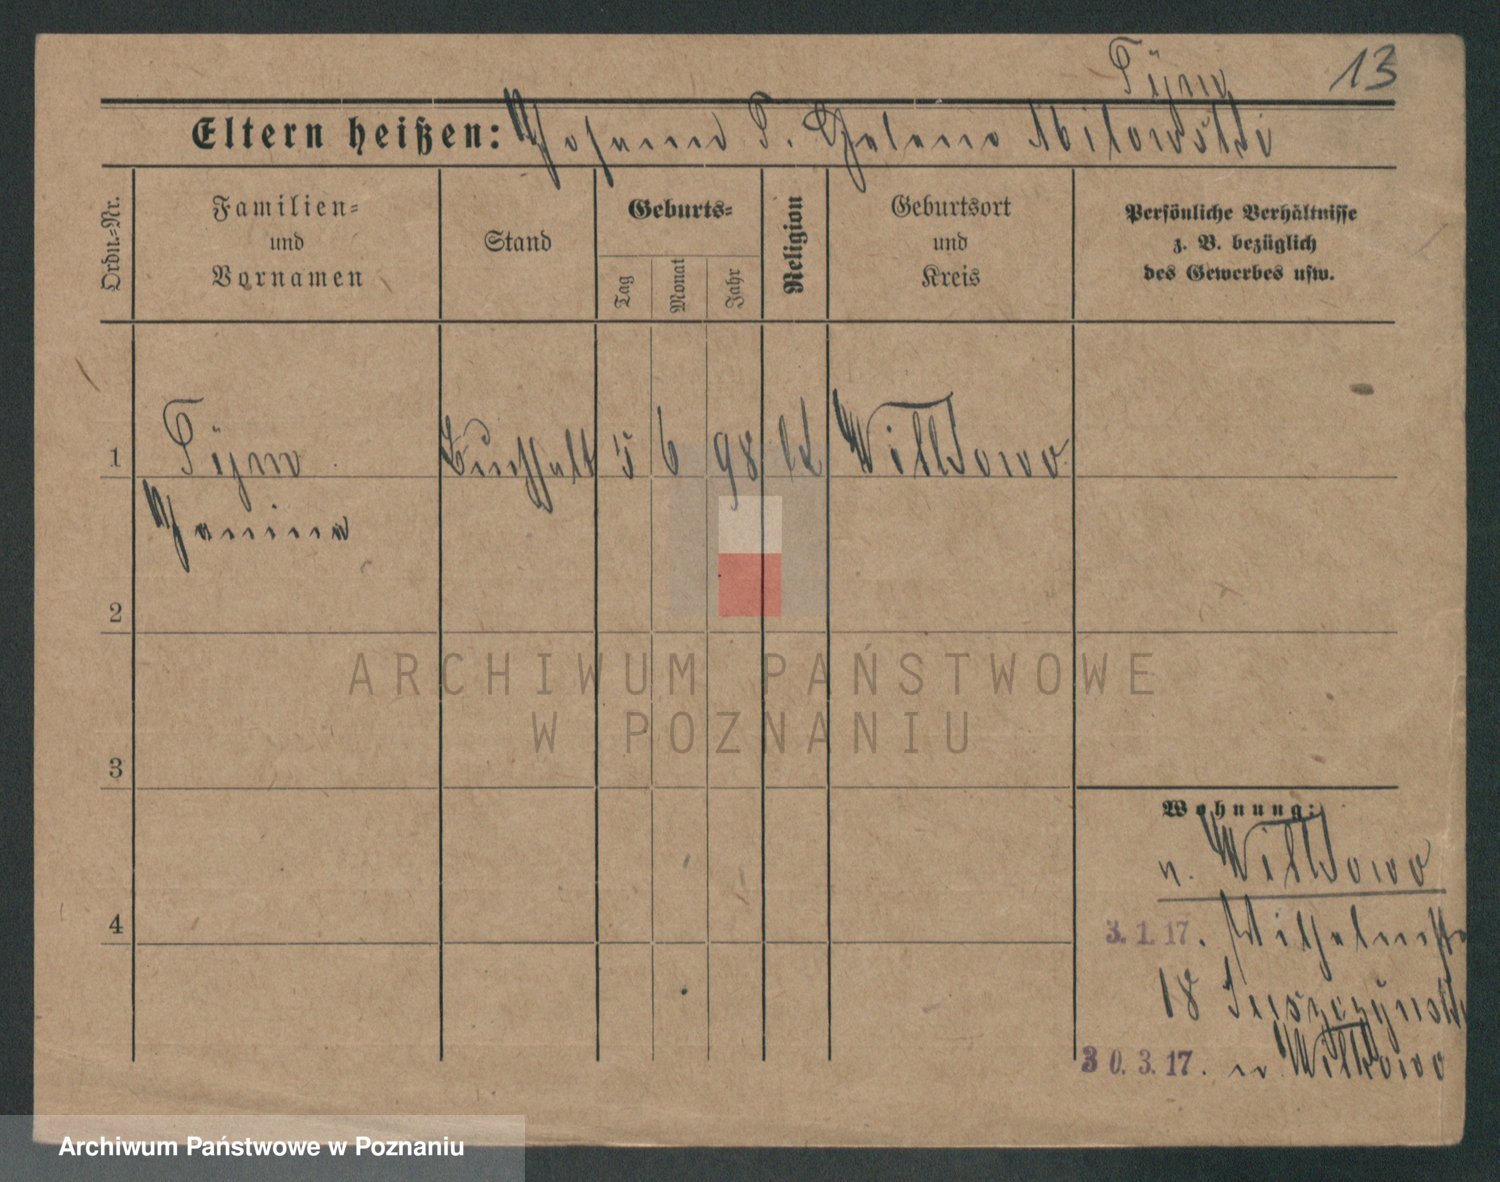 13
Eltern heißen: Johann
Ordn.=Nr.
Familien=
und
Vornamen
Stand
Geburts=
Tag
Monat
Jahr
Religion
Geburtsort
und
Kreis
Persönliche Verhältnisse
z. B. bezüglich
des Gewerbes usw.
1 Buchhalt 5 6 98 Witkowo
Janina
2
3
4
Wohnung:
n. Witkowo
3. 1. 17. Wilhelmstr
18
30. 3. 17. n Witkowo
ARCHIWUM PAŃSTWOWE
W POZNANIU
Archiwum Państwowe w Poznaniu